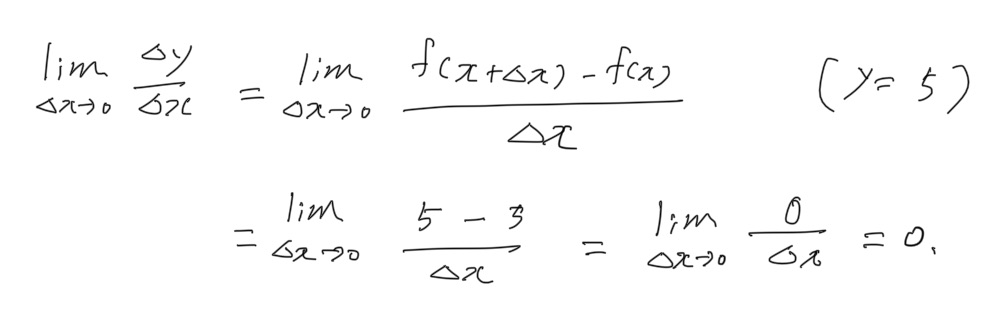 lim Δx→0 Δy/Δx = lim Δx→0 (f(x+Δx) - f(x))/Δx (y = 5)
= lim Δx→0 (5 - 3)/Δx = lim Δx→0 0/Δx = 0.